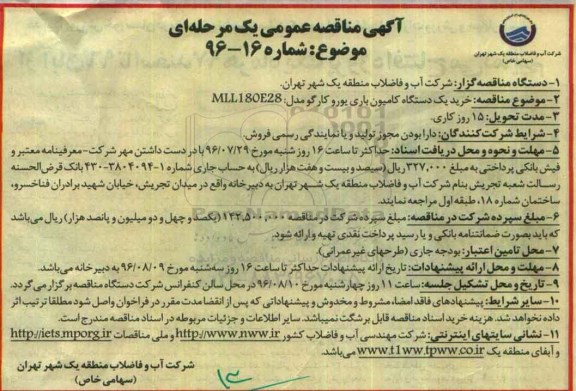 آگهی مناقصه عمومی یک مرحله‌ای
موضوع: شماره ۱۶-۹۶
شرکت آب و فاضلاب منطقه یک شهر تهران
(سهامی خاص)
۱- دستگاه مناقصه گزار: شرکت آب و فاضلاب منطقه یک شهر تهران.
۲- موضوع مناقصه: خرید یک دستگاه کامیون باری یورو کارگو مدل: MLL180E28
۳- مدت تحویل: ۱۵ روز کاری.
۴- شرایط شرکت کنندگان: دارا بودن مجوز تولید و یا نمایندگی رسمی فروش.
۵- مهلت و نحوه و محل دریافت اسناد: حداکثر تا ساعت ۱۶ روز شنبه مورخ ۹۶/۰۷/۲۹ با در دست داشتن مهر شرکت-معرفینامه معتبر و
فیش بانکی پرداختی به مبلغ ۳۲۷,۰۰۰ ریال (سیصد و بیست و هفت هزار ریال) به حساب جاری شماره ۱-۳۸۰۴۰۹۴-۴۳۰ بانک قرض الحسنه
رسالت شعبه تجریش بنام شرکت آب و فاضلاب منطقه یک شهر تهران به دبیرخانه واقع در میدان تجریش، خیابان شهید برادران فناخسرو،
ساختمان شماره ۱۸، طبقه اول مراجعه نمایند.
۶- مبلغ سپرده شرکت در مناقصه: مبلغ سپرده شرکت در مناقصه ۱۴۲,۵۰۰,۰۰۰ (یکصد و چهل و دو میلیون و پانصد هزار) ریال می‌باشد
که باید بصورت ضمانتنامه بانکی و یا رسید پرداخت نقدی تهیه و ارائه شود.
۷- محل تامین اعتبار: بودجه جاری (طرحهای غیرعمرانی).
۸- مهلت و محل ارائه پیشنهادات: تاریخ ارائه پیشنهادات حداکثر تا ساعت ۱۶ روز سه‌شنبه مورخ ۹۶/۰۸/۰۹ به دبیرخانه می‌باشد.
۹- تاریخ و محل تشکیل جلسه: ساعت ۱۱ روز چهارشنبه مورخ ۹۶/۰۸/۱۰ در محل سالن کنفرانس شرکت دستگاه مناقصه برگزار می گردد.
۱۰- سایر شرایط: پیشنهادهای فاقد امضاء، مشروط و مخدوش و پیشنهاداتی که پس از انقضا مدت مقرر در فراخوان واصل شود مطلقا ترتیب اثر
داده نخواهد شد. هزینه خرید اسناد مناقصه قابل برگشت نمیباشد. سایر اطلاعات و جزئیات مربوطه در اسناد مناقصه مندرج است.
۱۱- نشانی سایتهای اینترنتی: شرکت مهندسی آب و فاضلاب کشور http://www.nww.ir و ملی مناقصات http://iets.mporg.ir
و آبفای منطقه یک www.t1ww.tpww.co.ir می‌باشد.
شرکت آب و فاضلاب منطقه یک شهر تهران
(سهامی خاص)